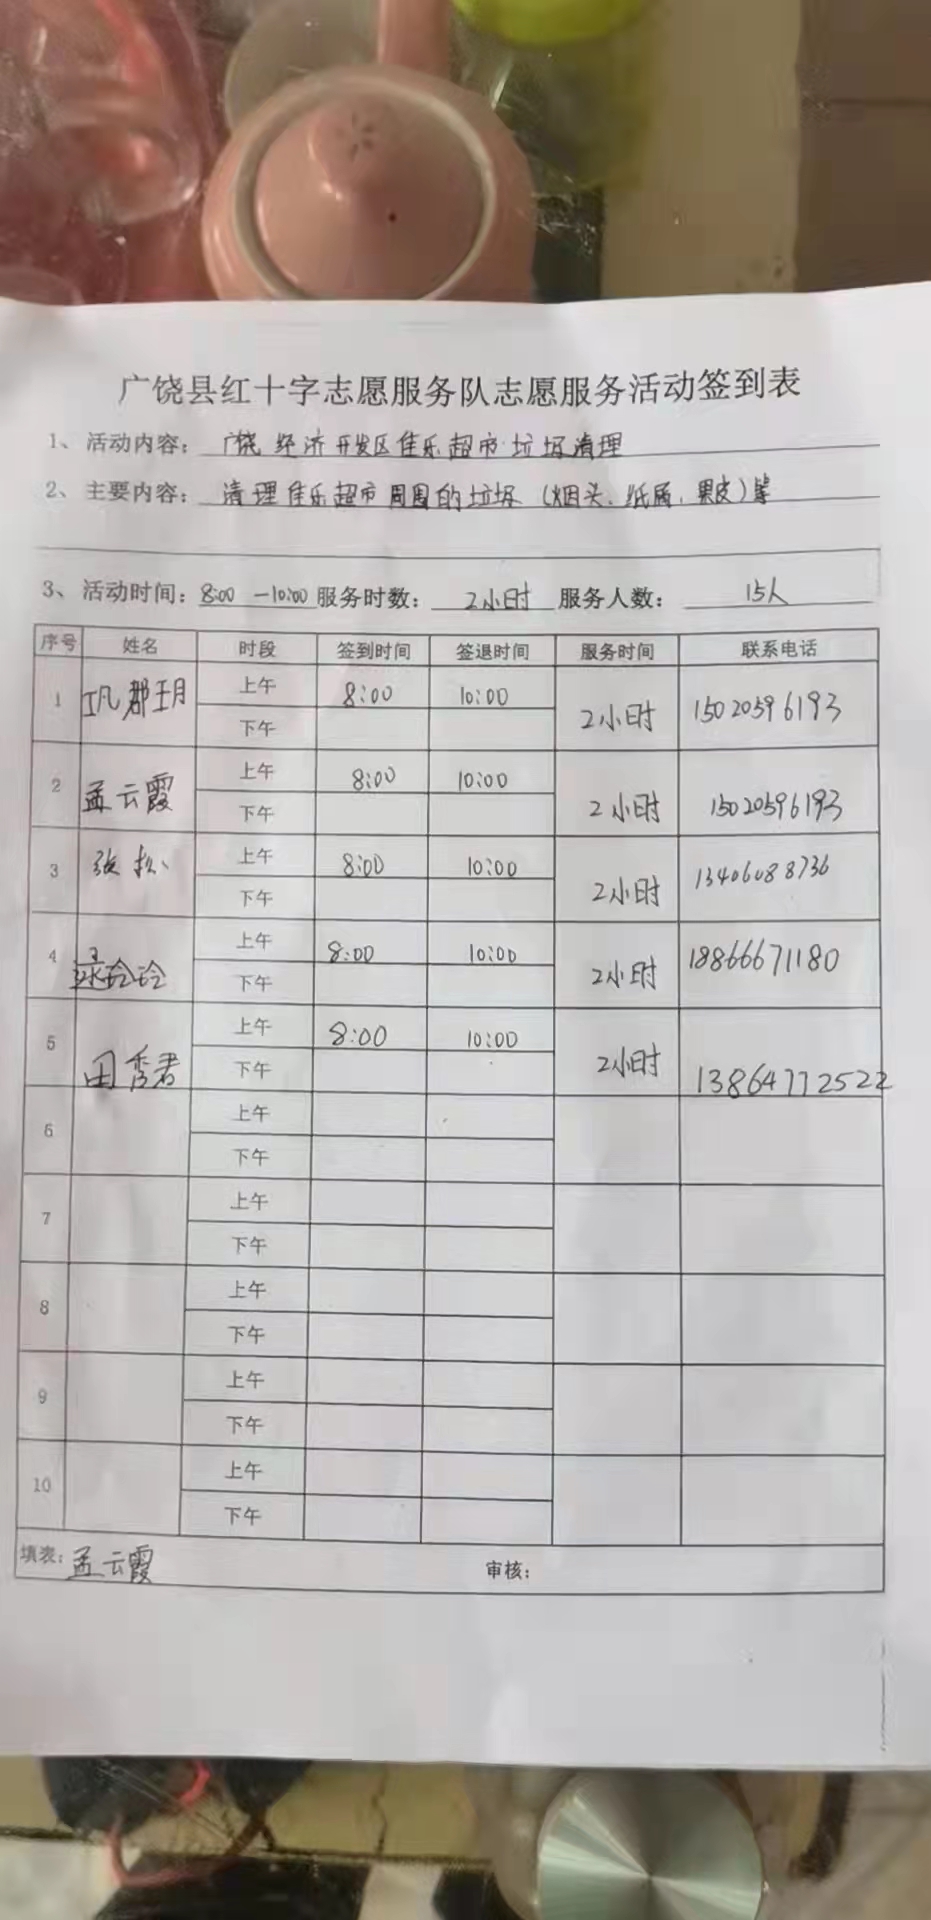 广饶县红十字志愿服务队志愿服务活动签到表
1、活动内容: 广饶经济开发区佳乐超市垃圾清理
2、主要内容: 清理佳乐超市周围的垃圾(烟头、纸屑、果皮)等
3、活动时间: 8:00 —10:00 服务时数: 2小时 服务人数: 15人
序号 姓名 时段 签到时间 签退时间 服务时间 联系电话
1 上午 8:00 10:00 2小时 15020596193
下午
2 孟云霞 上午 8:00 10:00 2小时 15020596193
下午
3 张松 上午 8:00 10:00 2小时 13406088736
下午
4 玲玲 上午 8:00 10:00 2小时 18866671180
下午
5 田秀君 上午 8:00 10:00 2小时 13864772522
下午
6 上午
下午
7 上午
下午
8 上午
下午
9 上午
下午
10 上午
下午
填表: 孟云霞 审核: